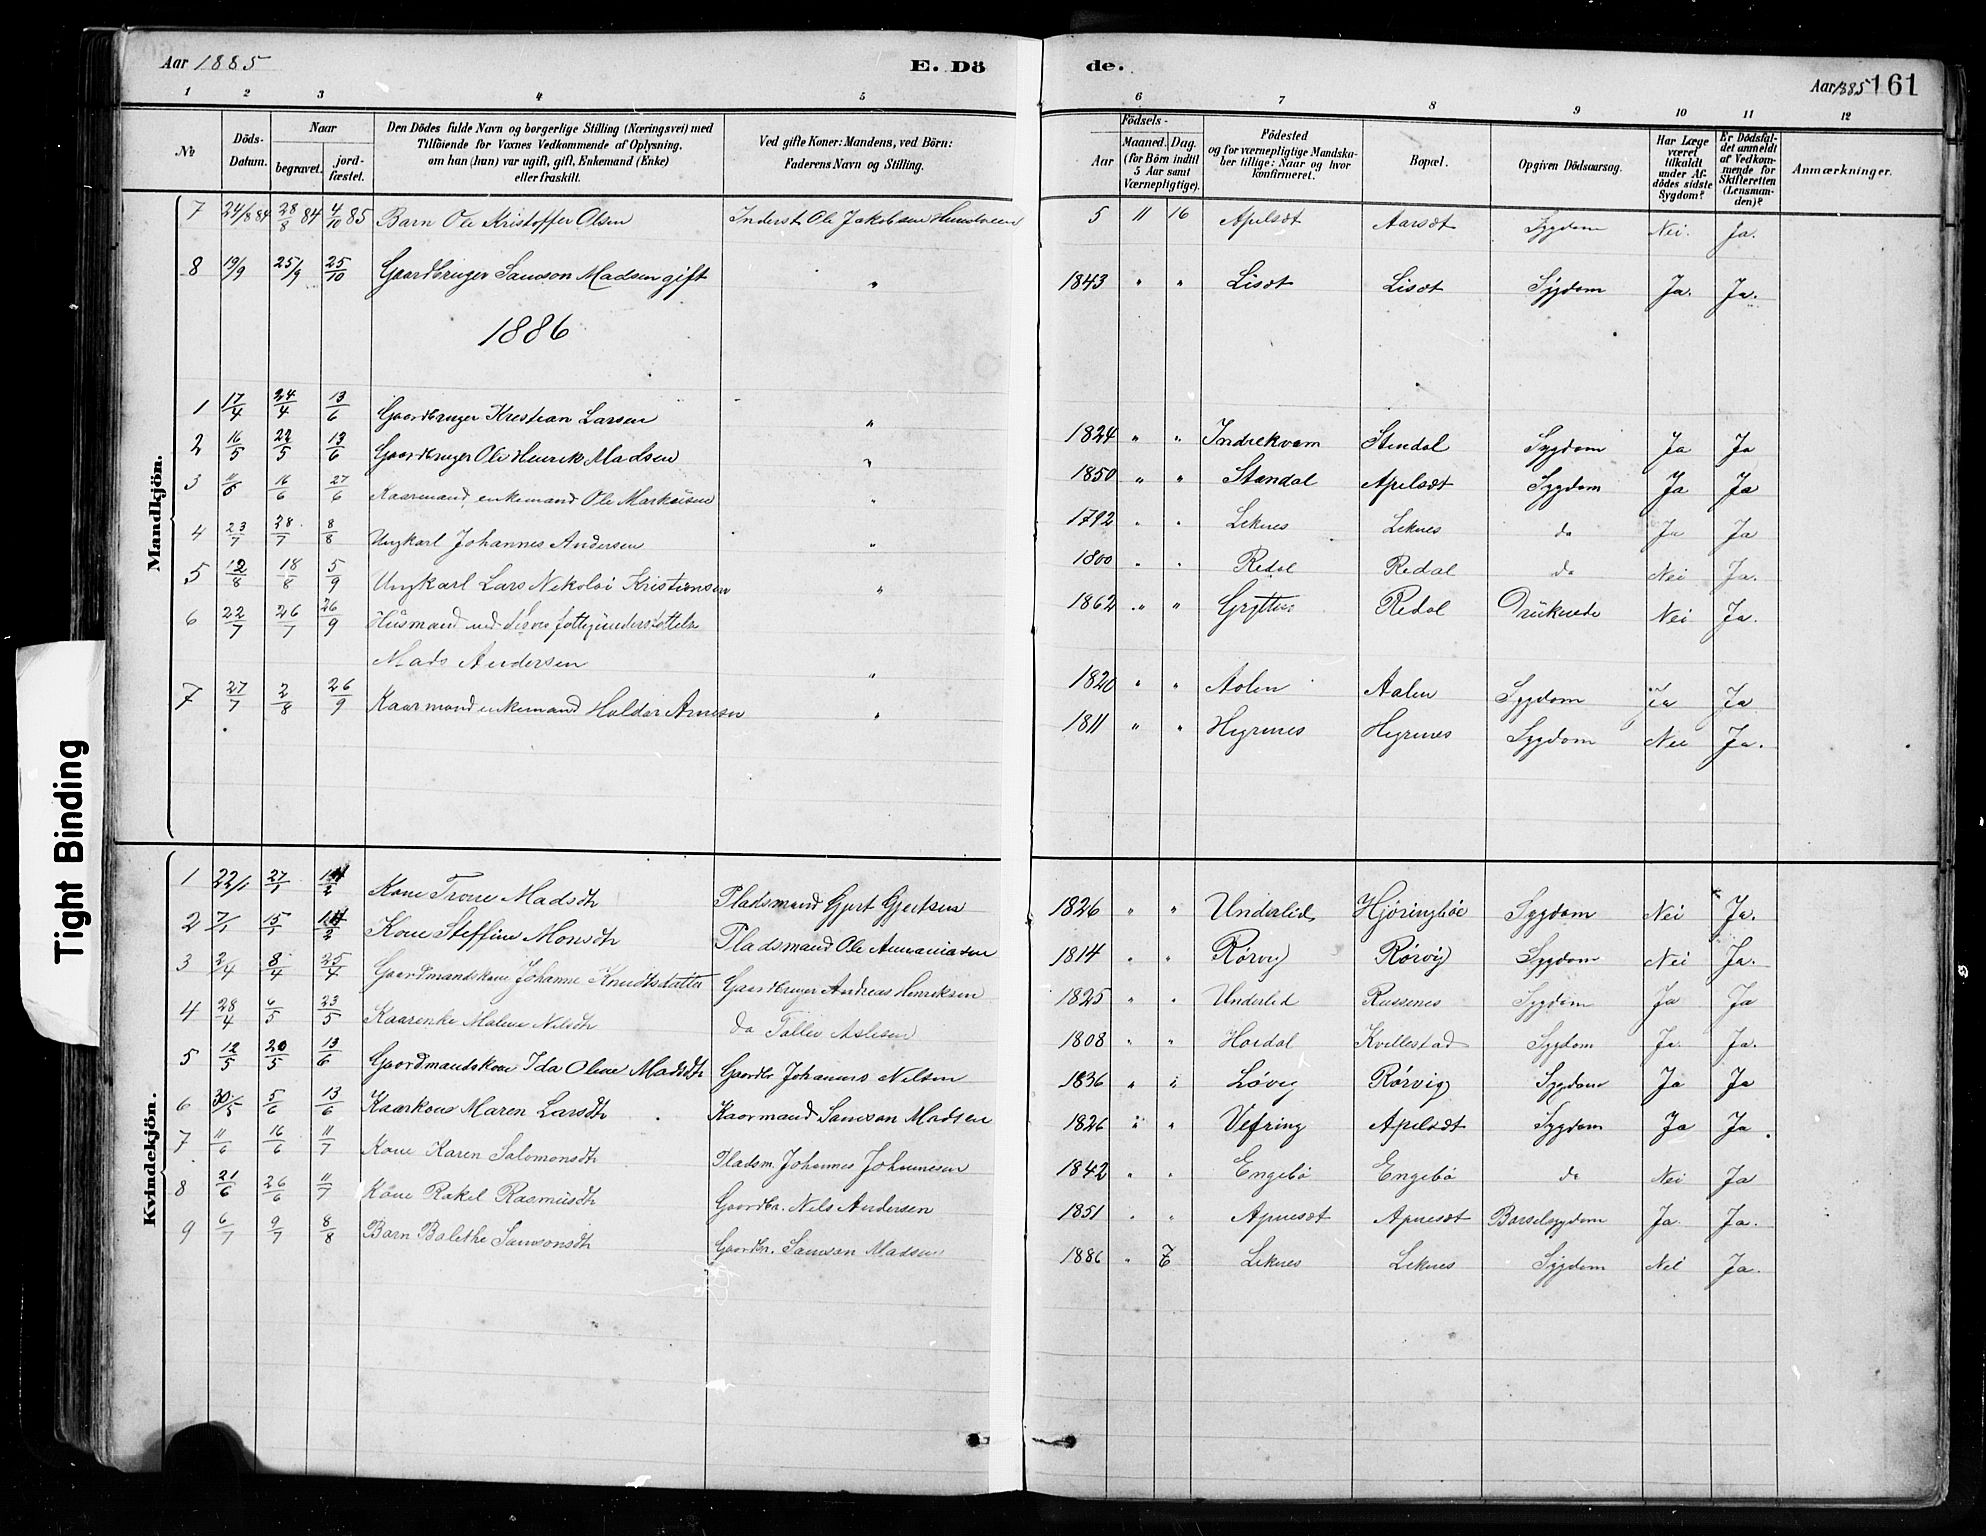 Aar 1885
E. Dö
de.
Aar 1885 161
1 2 3 4 5 6 7 8 9 10 11 12
№
Döds-Datum.
Naar
begravet.
jord-fæstet.
Den Dödes fulde Navn og borgerlige Stilling (Næringsvei) med
Tilföiende for Voxnes Vedkommende af Oplysning,
om han (hun) var ugift, gift, Enkemand (Enke)
eller fraskilt.
Ved gifte Koner: Mandens, ved Börn:
Faderens Navn og Stilling.
Födsels-
Aar
Maaned. Dag.
(for Börn indtil
5 Aar samt
Værnepligtige).
Födested
og for værnepligtige Mandska-
ber tillige: Naar og hvor
konfirmeret.
Bopæl.
Opgiven Dödsaarsag.
Har Læge
været
tilkaldt
under Af-
dödes sidste
Sygdom?
Er Dödsfal-
det anmeldt
af Vedkom-
mende for
Skifteretten
(Lensman-
den)?
Anmærkninger.
Mandkjön.
7 24/8 84 28/8 84 4/10 85 Barn Ole Kristoffer Olsen Inderst Ole Jakobsen 5 11 16 Apelsæt Aarsæt Sygdom Nei. Ja.
8 19/9 25/9 25/10 Gaardbruger Samson Madsen gift " 1843 " " Lisæt Lisæt Sygdom Ja. Ja.
1886
1 17/4 24/4 13/6 Gaardbruger Krestian Larsen " 1824 " " Indrekvam Stendal Sygdom Ja Ja
2 16/5 22/5 13/6 Gaardbruger Ole Henrik Madsen " 1850 " " Standal Apelsæt Sygdom Ja Ja
3 11/6 16/6 27/6 Kaarmand, enkemand Ole Markusen " 1792 " " Leknes Leknes do Ja Ja
4 23/7 28/7 8/8 Ungkarl Johannes Andersen " 1800 " " Redal Redal do Nei Ja.
5 12/8 18/8 5/9 Ungkarl Lars Nikolai Kristiansen " 1862 " " Gryttens Redal Druknede Nei Ja.
6 22/7 26/7 26/9 Husmand med fattigunderstøttelse
Mads Andersen " 1820 " " Aalen Aalen Sygdom Ja Ja
7 27/7 2/8 26/9 Kaarmand enkemand Haldor Arnesen " 1811 " " Hegrenes Hegrenes Sygdom Nei Ja.
Kvindekjön.
1 22/1 27/1 14/2 Kone Trone Madsdtr Pladsmand Gjert Gjertsen 1826 " " Underlid Hjøringbøe Sygdom Nei Ja.
2 7/1 15/1 14/2 Kone Steffine Monsdtr Pladsmand Ole Annaniasen 1814 " " Rørvig Rørvig Sygdom Nei Ja.
3 2/4 8/4 25/4 Gaardmandskone Johanne Knudtsdatter Gaardbruger Andreas Henriksen 1825 " " Underlid Russenes Sygdom Ja Ja
4 28/4 6/5 23/5 Kaarenke Malene Nilsdtr do Tollev Aslesen 1808 " " Hordal Kvellestad Sygdom Ja. Ja.
5 12/5 20/5 13/6 Gaardmandskone Ida Oline Madsdtr Gaardbr. Johannes Nilsen 1836 " " Løvig Rørvig Sygdom Ja Ja
6 30/5 5/6 13/6 Kaarkone Maren Larsdtr Kaarmand Samson Madsen 1826 " " Vefring Apelsæt Sygdom Ja Ja.
7 11/6 16/6 11/7 Kone Karen Salomonsdtr Pladsm. Johannes Johannesen 1842 " " Engebø Engebø do Nei Ja
8 21/6 26/6 11/7 Kone Rakel Rasmusdtr Gaardbr. Nils Andersen 1851 " " Apnesæt Apnesæt Barselsygdom Ja. Ja.
9 6/7 9/7 8/8 Barn Balethe Samsonsdtr Gaardbr. Samson Madsen 1886 " Leknes Leknes Sygdom Nei Ja.
Tight Binding